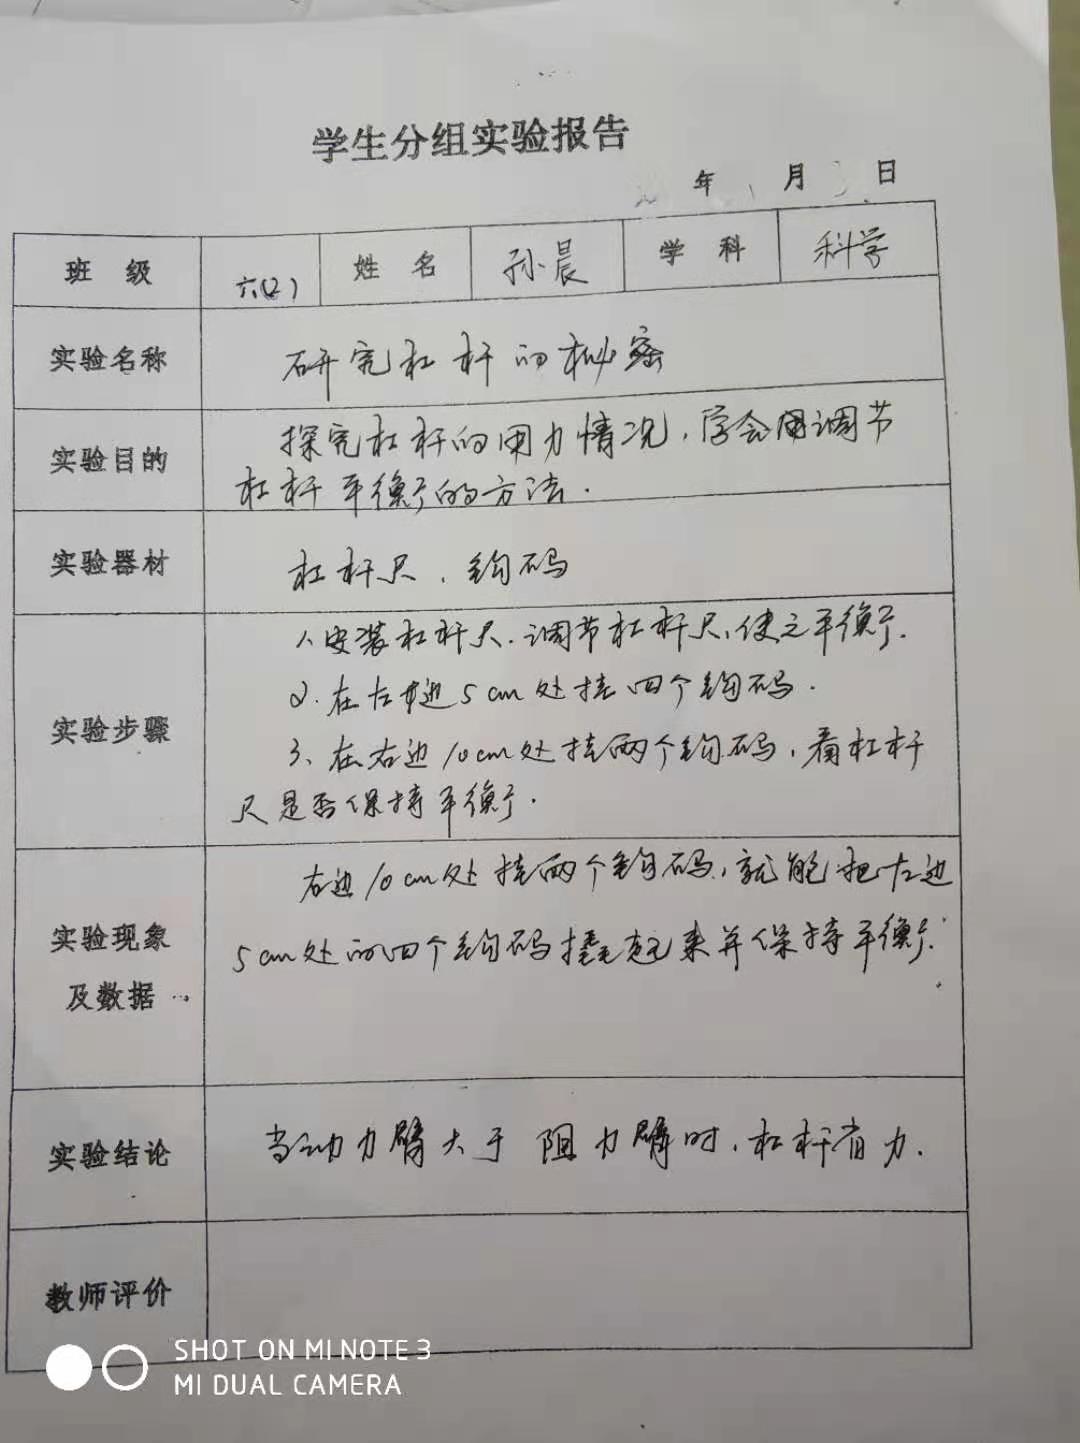 学生分组实验报告
年 月 日
班 级 六(2) 姓 名 孙晨 学 科 科学
实验名称 研究杠杆的秘密
实验目的 探究杠杆的用力情况,学会用调节
杠杆平衡的方法.
实验器材 杠杆尺、钩码
实验步骤 1、安装杠杆尺.调节杠杆尺,使之平衡.
2.在左边5cm处挂四个钩码.
3、在右边10cm处挂两个钩码,看杠杆
尺是否保持平衡.
实验现象及数据 右边10cm处挂两个钩码,就能把左边
5cm处的四个钩码撬起来并保持平衡.
实验结论 当动力臂大于阻力臂时,杠杆省力.
教师评价
SHOT ON MI NOTE 3
MI DUAL CAMERA